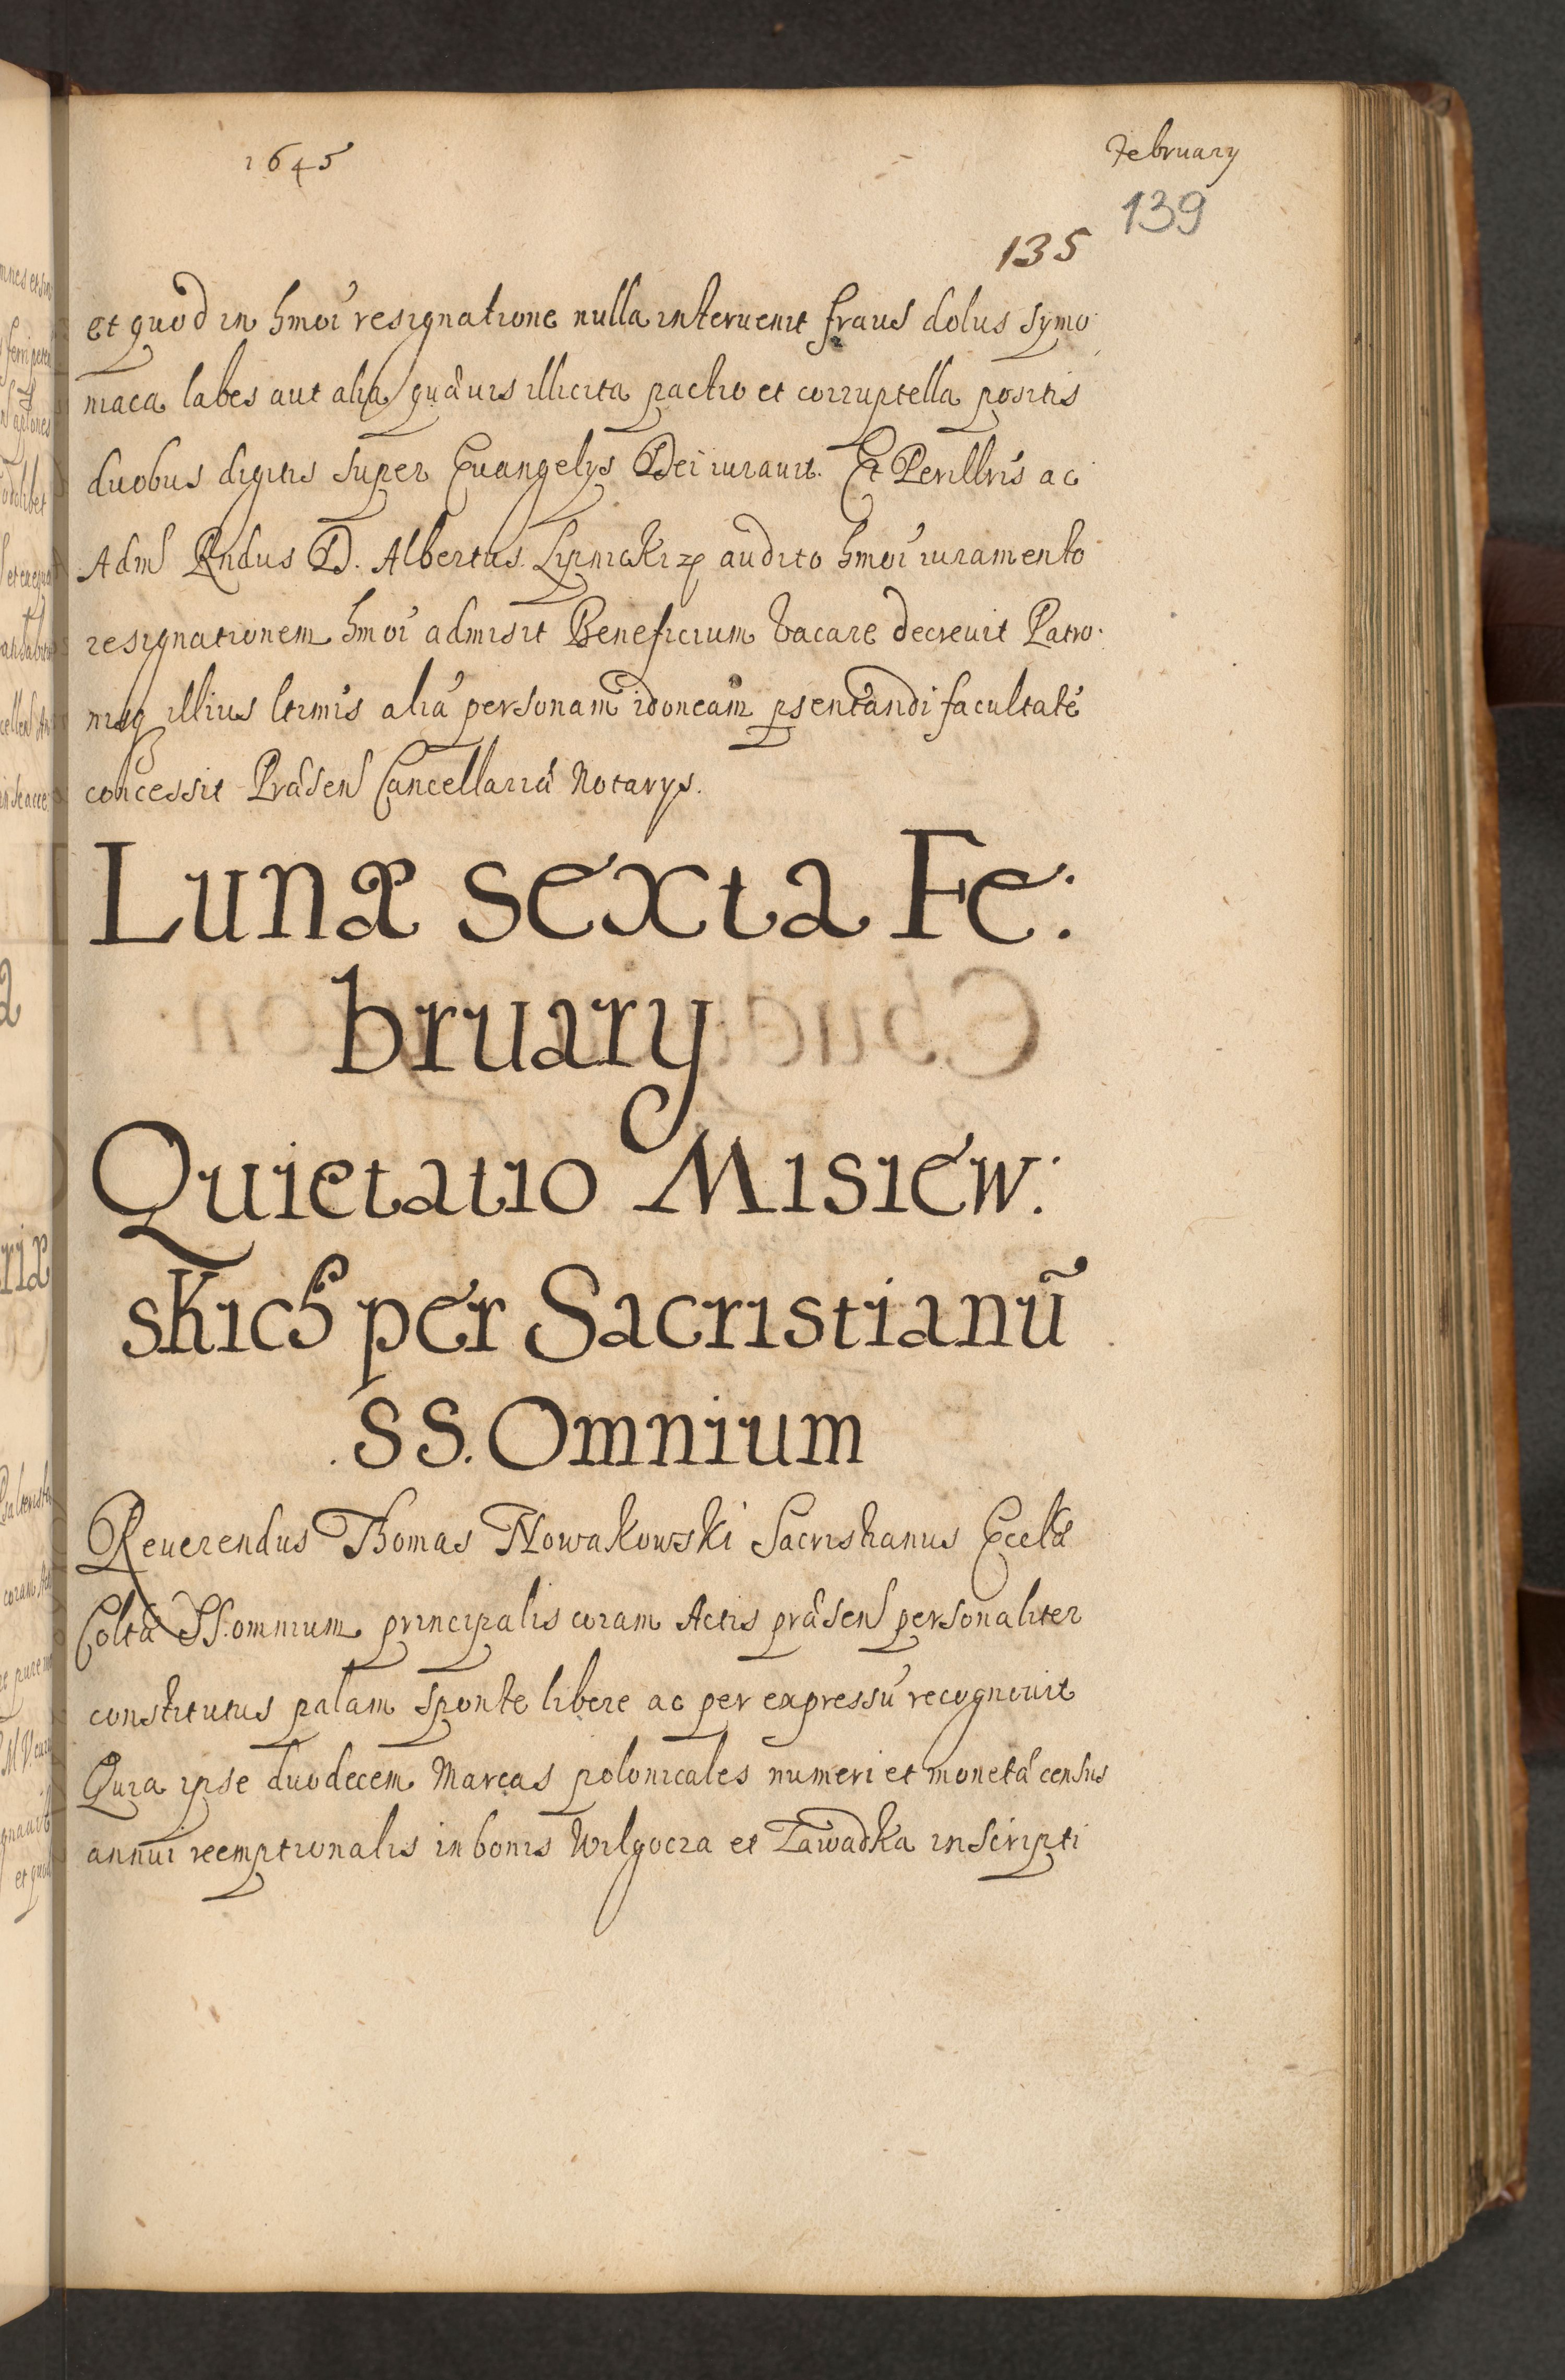 1645
February
139
135
et quod in hmoi resignatione nulla interuenit fraus dolus symo
niaca labes aut alia quauis illicita pactio et corruptella positis
duobus digitis super Euangelys Dei iurauit. Et Perillris ac
Adm Rndus D. Albertus Lipnicki audito hmoi iuramento
resignationem hmoi admisit Beneficium vacare decreuit Patro
nisq illius ltimis aliā personam idoneam psentandi facultatē
concessit Præsen Cancellariæ Notarys.
Lunæ sexta Fe:
bruary
Quietatio Misiew:
skich per Sacristianū
SS. Omnium
Reuerendus Thomas Nowakowski Sacristianus Eccliæ
Coltæ SS. omnium principalis coram Actis præsen personaliter
constitutus palam sponte libere ac per expressū recognouit
Quia ipse duodecem Marcas polonicales numeri et monetæ census
annui reemptionalis in bonis Wilgocza et Zawadka inscripti